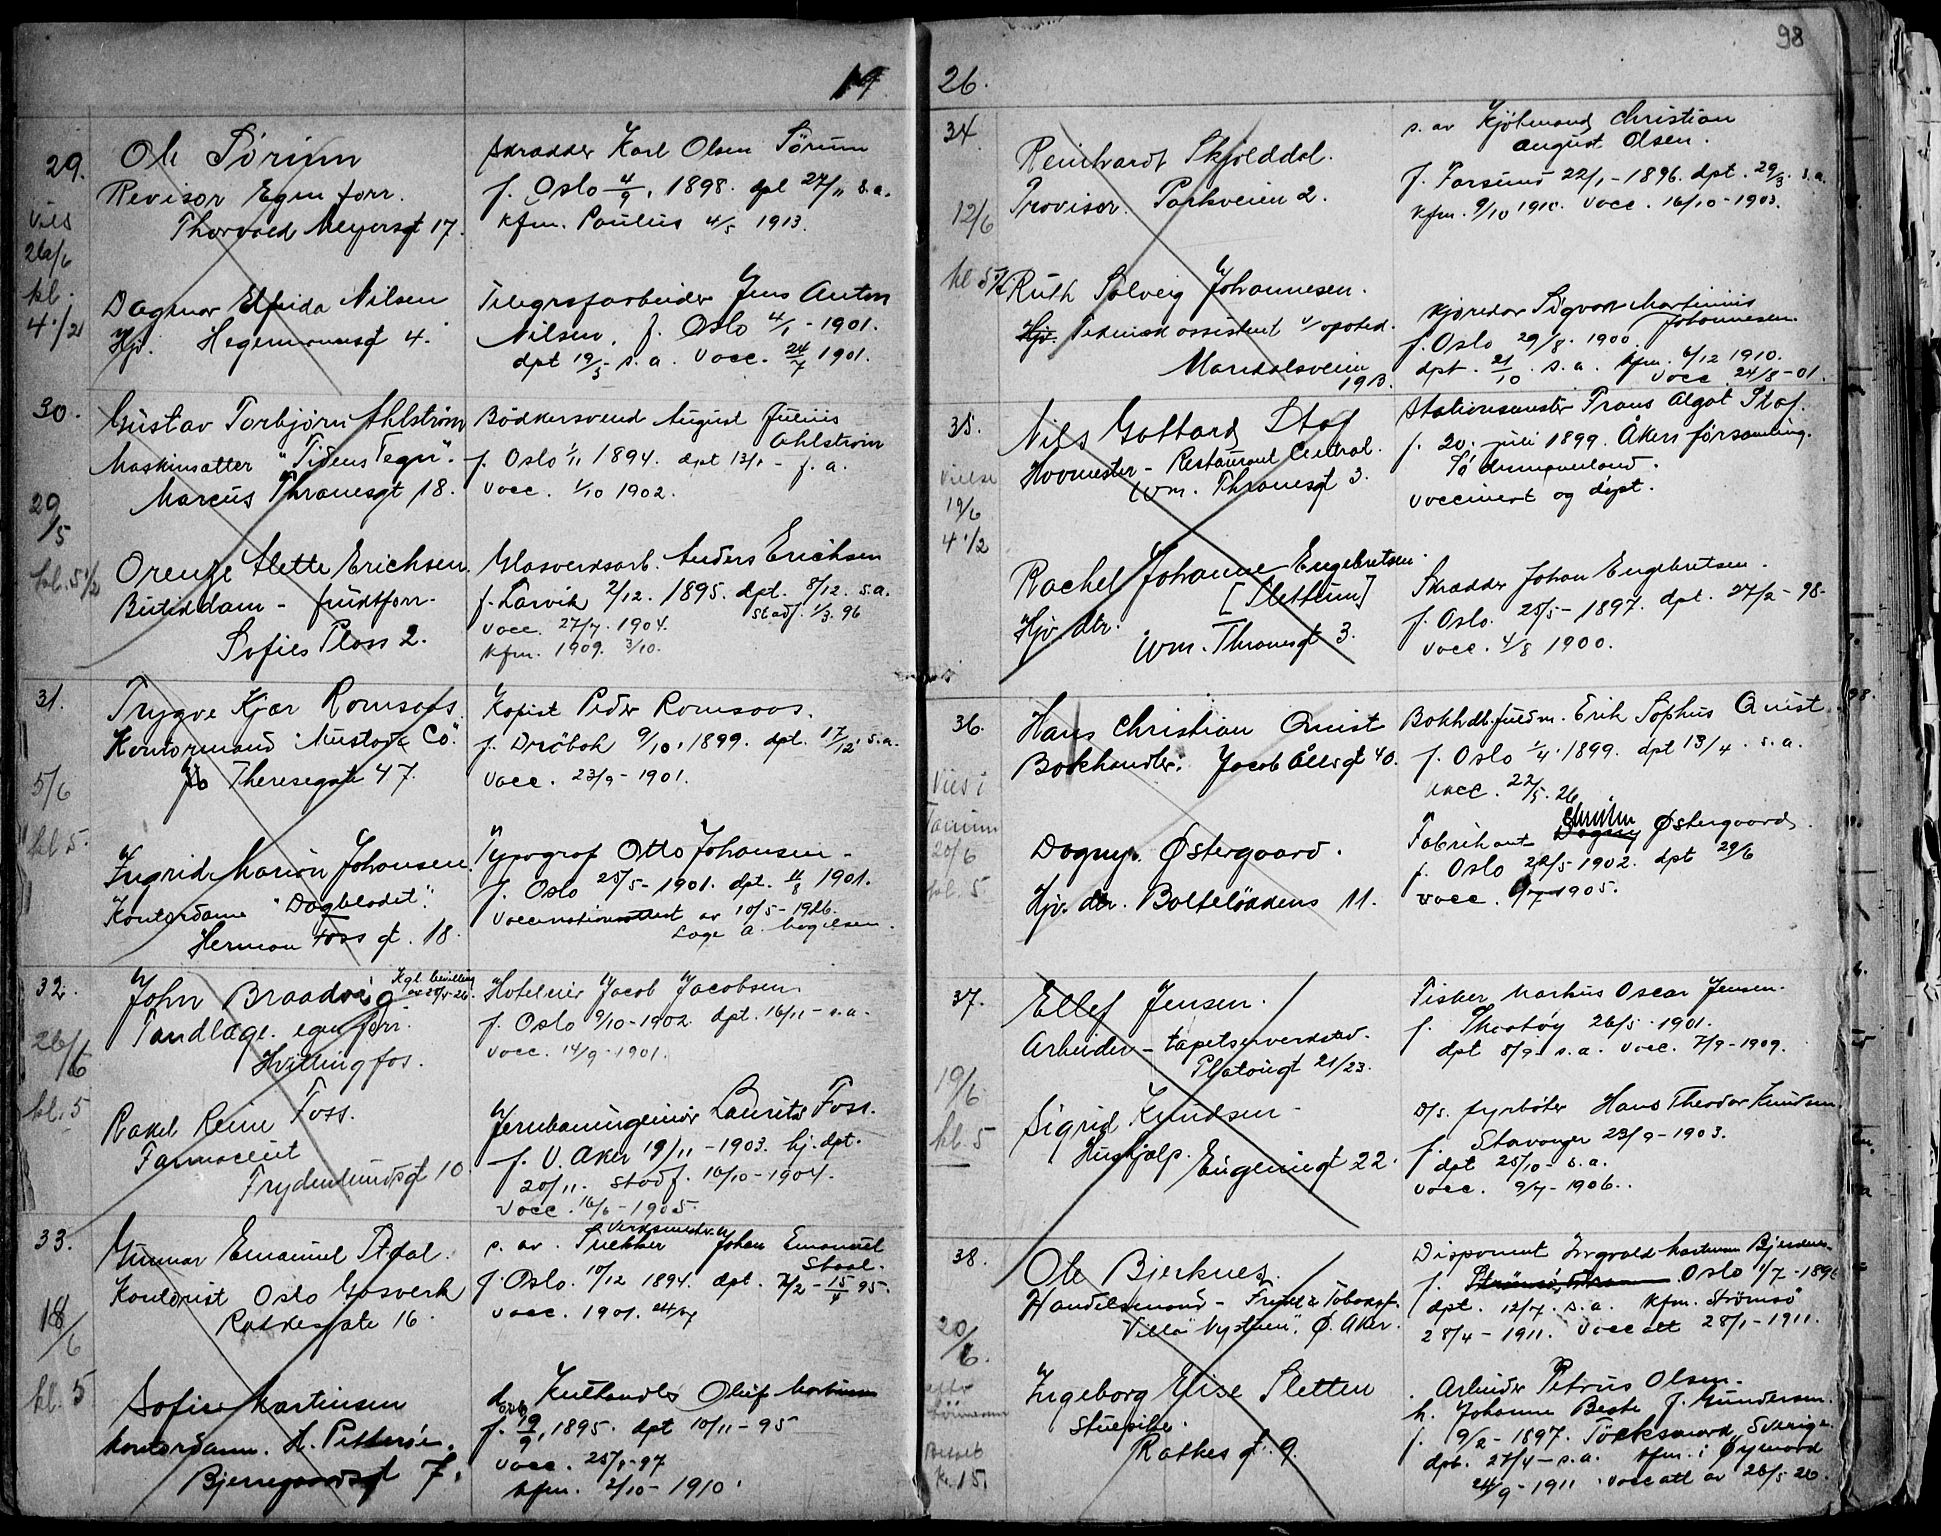 19
29.
Ole Sörum
Revisor Egen forr.
Thorvald Meyersgt 17.
Skrædder Karl Olsen Sörum
f. Oslo 4/9. 1898. dpt 27/11 s.a.
Kfm. Paulus 4/5 1913.
Vies
26/6
kl.
4 1/2
Dagmar Elfrida Nilsen
Hjv. Hegermannsgt 4.
Telegrafarbeider Jens Anton
Nilsen. f. Oslo 4/1 - 1901.
dpt 19/5 s.a. Vacc. 24/7 1901.
30.
Gustav Torbjörn Ahlström
Maskinsætter "Tidens Tegn".
Marcus Thranesgt 18.
Bödkersvend August Julius
Ahlström
f. Oslo 1/11 1894. dpt 13/1 - f. a.
Vacc. 1/10 1902.
29/5
kl. 5 1/2
Orenze Alette Erichsen
Butikdam - fruktforr.
Sofies Plass 2.
Glasverksarb. Anders Erichsen
f. Larvik 2/12. 1895. dpt. 8/12. s.a.
stadf. 1/3. 96
Vacc. 27/7. 1904.
Kfm. 1909. 3/10.
31.
Trygve Kjær Romsaas.
Kontormand "Mustad & Co".
Theresegate 47.
Kopist Peder Romsaas.
f. Dröbak 9/10. 1899. dpt. 17/12. s.a.
Vacc. 23/9 - 1901.
5/6
kl 5.
Ingrid Marion Johansen.
Kontordame "Dagbladet".
Herman Foss gt. 18.
Typograf Otto Johansen -
f. Oslo 25/5 - 1901. dpt. 11/8 1901.
Vaccinationsattest av 10/5 - 1926.
Læge A. Magelsen.
32.
John Braadvig
Kgl. bevilling
Tandlæge. egen forr.
Hvittingfos.
Hoteleier Jacob Jacobsen.
f. Oslo 9/10 - 1902 dpt. 16/11 - s.a.
Vacc. 14/9 - 1901.
26/6
kl. 5
Rakel Reim Foss.
Farmaceut
Frydenlundsgt 10
Jernbaneingeniör Laurits Foss.
f. V. Aker 19/11 - 1903. hj. dpt.
20/11. Stadf. 10/10 - 1904.
Vacc. 16/6 - 1905.
33.
Gunnar Emanuel Staal.
Kontorist Oslo Gasverk
Ratkesgate 16.
s. av Johan Emanuel
Staal.
f. Oslo. 10/12 1894. dpt. 7/2 - 15/4 95.
Vacc. 1901. 24/7
18/6
kl. 5
Sofie Martinsen
Kontordame. H. Petteröe.
Bjerregaardsgt 7.
f. 19/9. 1895. dpt 10/11 - 95
Vacc. 25/8 - 97
kfm. 2/10 - 1910.
98
26.
34
Reinhardt Skjolddal.
Provisor. Parkveien 2.
s. av Kjøbmand Christian
August Olsen.
f. Farsund 22/1 - 1896. dpt. 29/3. s.a.
Kfm. 9/10 1910. Vacc. 16/10 - 1903.
12/6
kl 5 1/2
Ruth Solveig Johannesen.
Hjv. assistent
Maridalsveien
Kjøredar Sigvart Martinius
Johannesen.
f. Oslo 29/8. 1900.
dpt. 21/10. s.a. Kfm. 6/12 1910.
Vacc. 24/8 - 01.
35.
Nils Gottard Staf
Hovmester - Restaurant Central.
Wm. Thranesgt 3.
Stationsmester Frans Algot Staf.
f. 20. juli 1899. Åkers församling.
Södermanland.
Vaccinert og döpt.
Vielse
19/6
4 1/2
Rachel Johanne Engebretsen
[Slettum]
Hjv. dtr.
Wm. Thranesgt 3.
Skrædder Johan Engebretsen.
f. Oslo. 25/5 - 1897. dpt. 27/2 - 98.
Vacc. 4/8 1900.
36.
Hans Christian Quist
Bokhandler. Jacob Allsgt 40.
Bokhdl. fuldm. Erik Sophus Quist.
f. Oslo 1/4. 1899. dpt 13/4. s.a.
Vacc. 22/5. 26
Vies i
Tanum
20/6
kl. 5
Dagny Østergaard.
Hjv. dtr. Bolteløkkens 11.
Fabrikant Dagny Østergaard.
f. Oslo 22/5 1902. dpt 29/6
Vacc. 9/7 1905.
37.
Ellef Jensen.
Arbeider - tapetserverksted.
Platousgt 21/23.
Fisker Markus Oscar Jensen.
f. Thorsöy 26/5 - 1901.
dpt 8/9 s.a. Vacc. 7/9 - 1909.
19/6
kl. 5
Sigrid Knudsen -
Hushjælp. Eugeniesgt 22.
D/s. fyrböter Hans Theodor Knudsen
f. Stavanger 23/9 - 1903.
dpt 25/10 - s.a.
Vacc. 9/7 - 1906.
38.
Ole Bjerknes.
Handelsmand - Frukt & Tobaksf.
Villa "Nystuen". Ø. Aker.
Disponent Ingvald Martinius Bjerknes
f. Oslo 1/7 - 1896
dpt. 12/7. s.a. Kfm. Strömsö
28/4 - 1911. Vacc att 28/1 - 1911.
20/6.
kr. 15.
Ingeborg Elise Sletten
Stuepike.
Ratkes gt. 9.
Arbeider Petrus Olsen.
h. Johanne Beate f. Gundersen.
f. 9/2 - 1897. Töcksmark, Sverige.
dpt. 27/4 - s.a. Kfm. i Øymark
24/9 - 1911. Vacc att av 26/5 26.